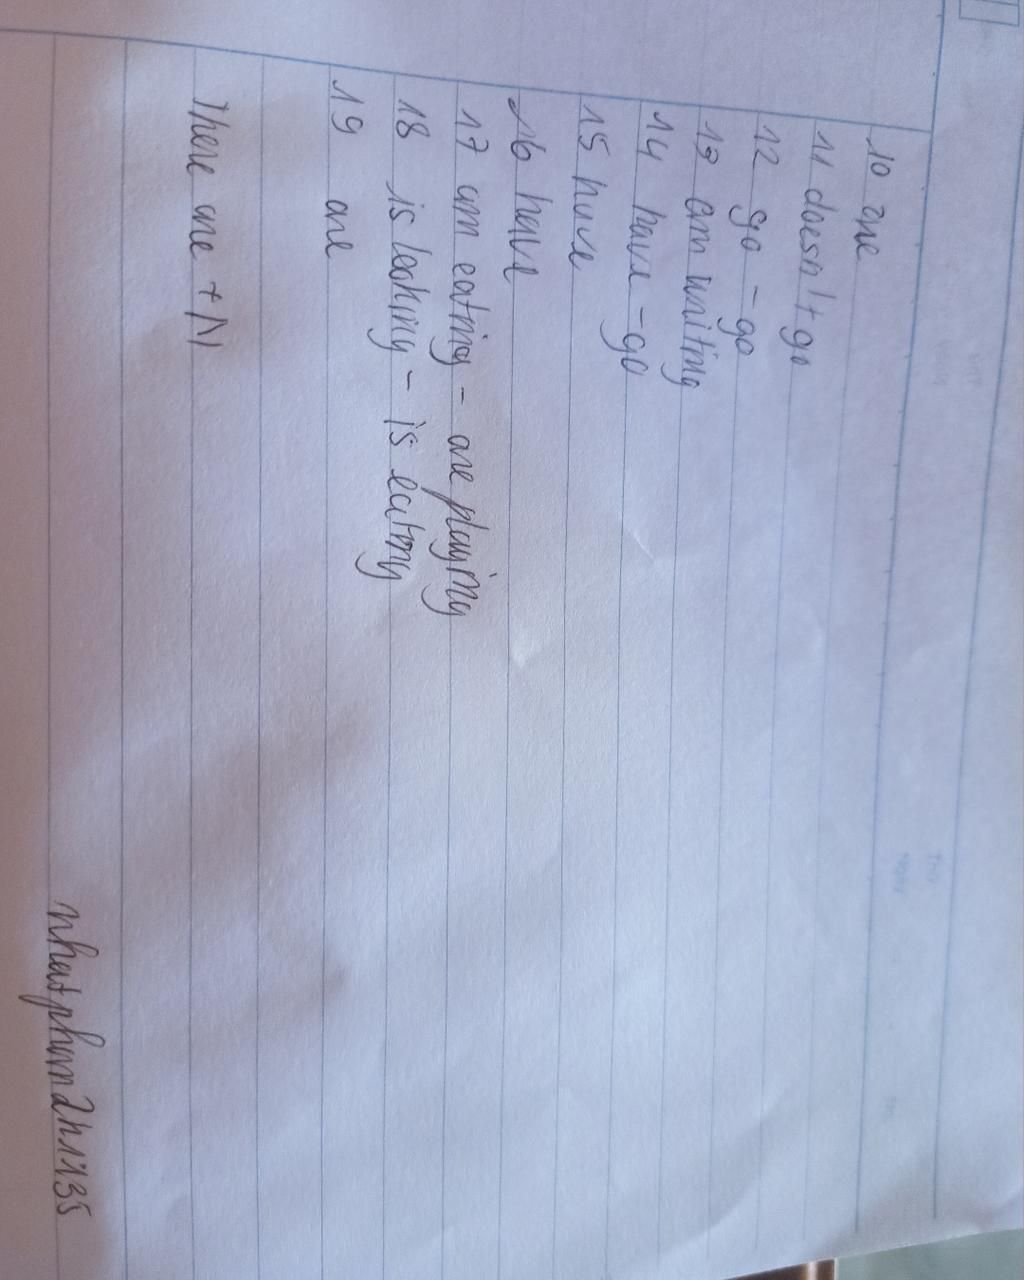 10 are
11 doesn't go
12 go - go
13 am writing
14 have - go
15 have
16 have
17 am eating - are playing
18 is leaking - is eating
19 are
There are + N
nhatpham2h1135